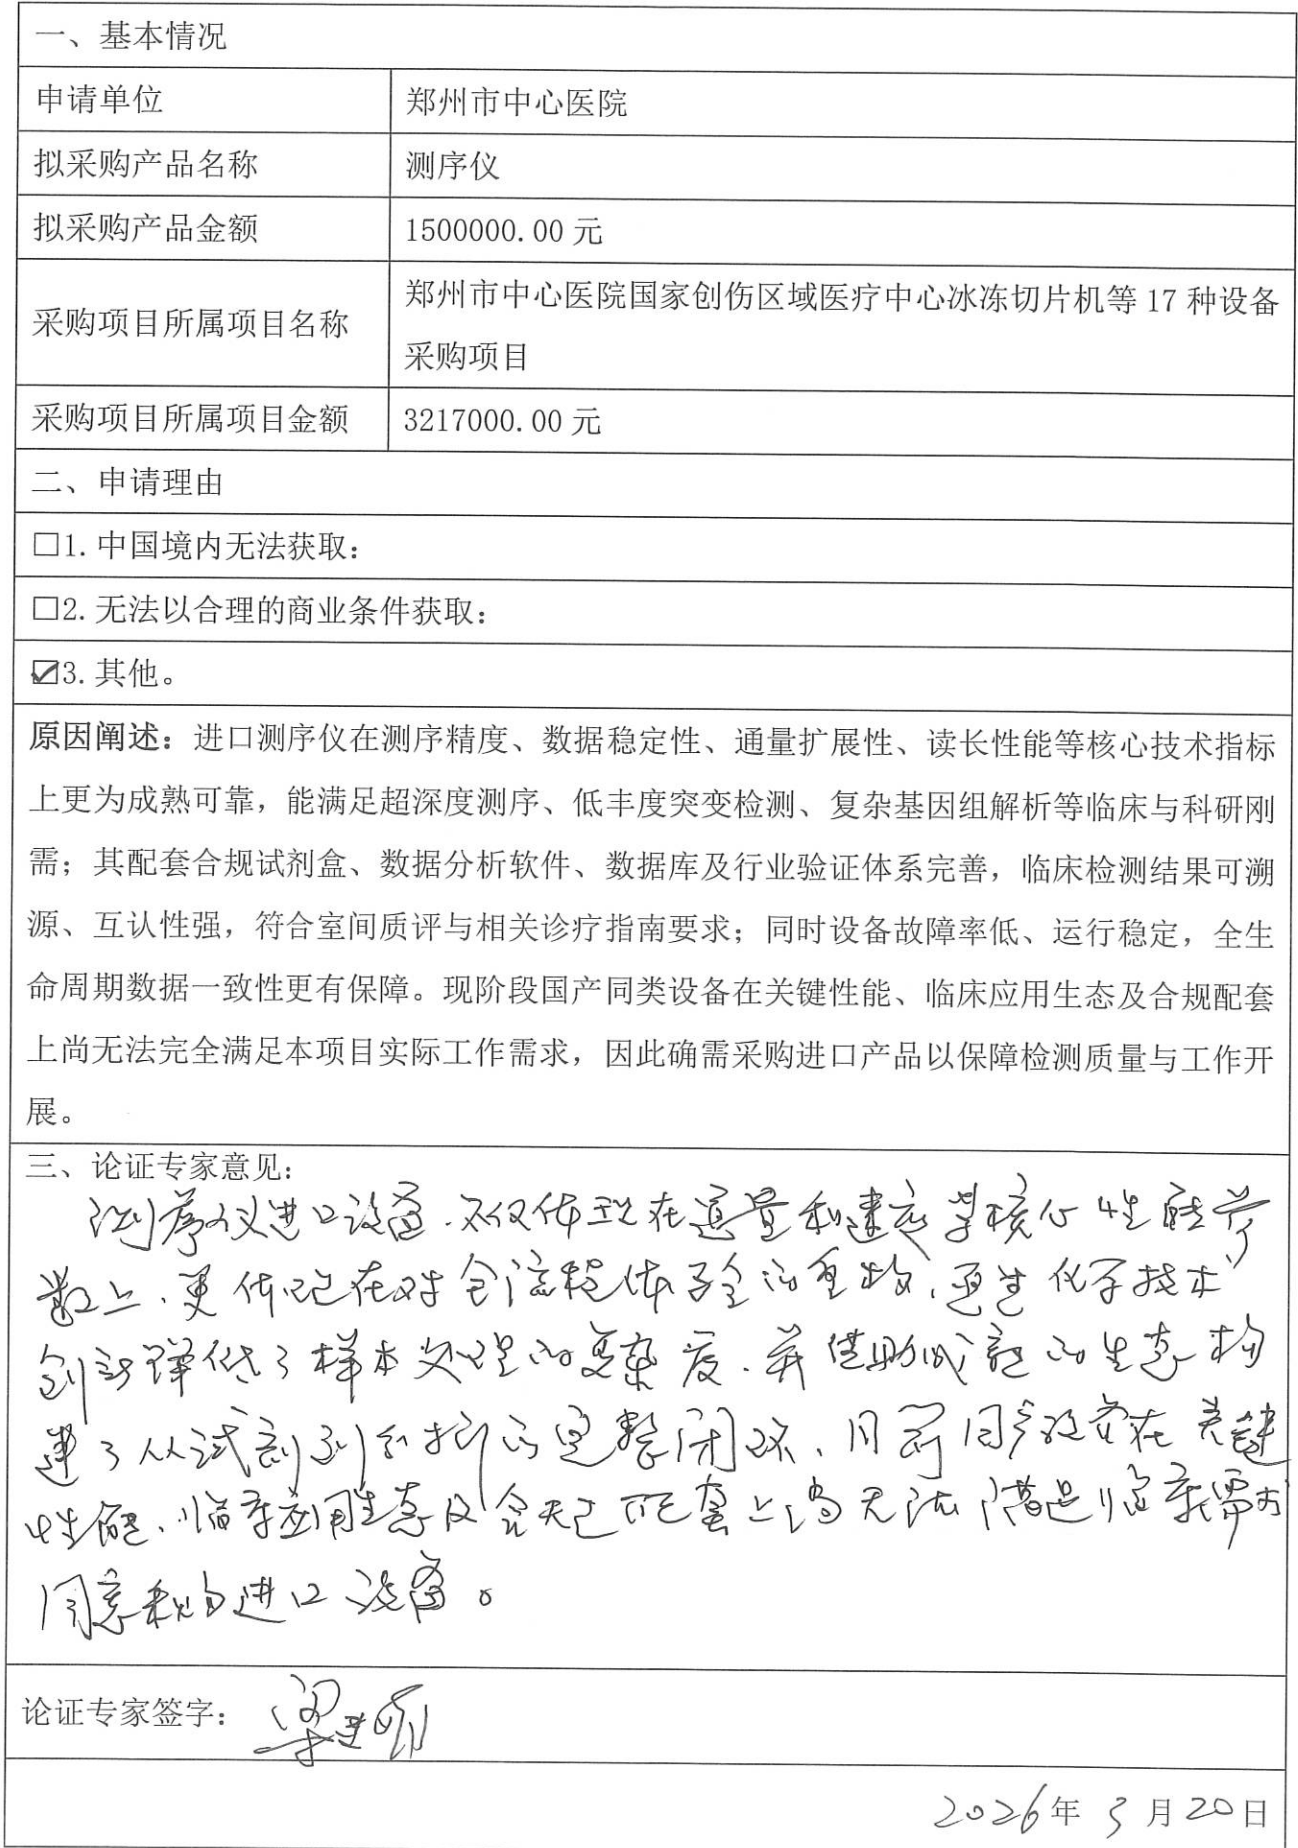 一、基本情况
申请单位
郑州市中心医院
拟采购产品名称
测序仪
拟采购产品金额
1500000.00 元
采购项目所属项目名称
郑州市中心医院国家创伤区域医疗中心冰冻切片机等 17 种设备
采购项目
采购项目所属项目金额
3217000.00 元
二、申请理由
□1. 中国境内无法获取：
□2. 无法以合理的商业条件获取：
☑3. 其他。
原因阐述：进口测序仪在测序精度、数据稳定性、通量扩展性、读长性能等核心技术指标
上更为成熟可靠，能满足超深度测序、低丰度突变检测、复杂基因组解析等临床与科研刚
需；其配套合规试剂盒、数据分析软件、数据库及行业验证体系完善，临床检测结果可溯
源、互认性强，符合室间质评与相关诊疗指南要求；同时设备故障率低、运行稳定，全生
命周期数据一致性更有保障。现阶段国产同类设备在关键性能、临床应用生态及合规配套
上尚无法完全满足本项目实际工作需求，因此确需采购进口产品以保障检测质量与工作开
展。
三、论证专家意见：
测序仪进口设备，不仅体现在通量和速度等核心性能参
数上，更体现在对全流程体验的重构，通过化学技术
创新降低了样本处理的复杂度，并借助成熟的生态构
建了从试剂到分析的完整闭环，目前国产设备在关键
性能、临床应用生态及合规配套上尚无法满足临床需求
同意采购进口设备。
论证专家签字：
2026年 3 月 20 日